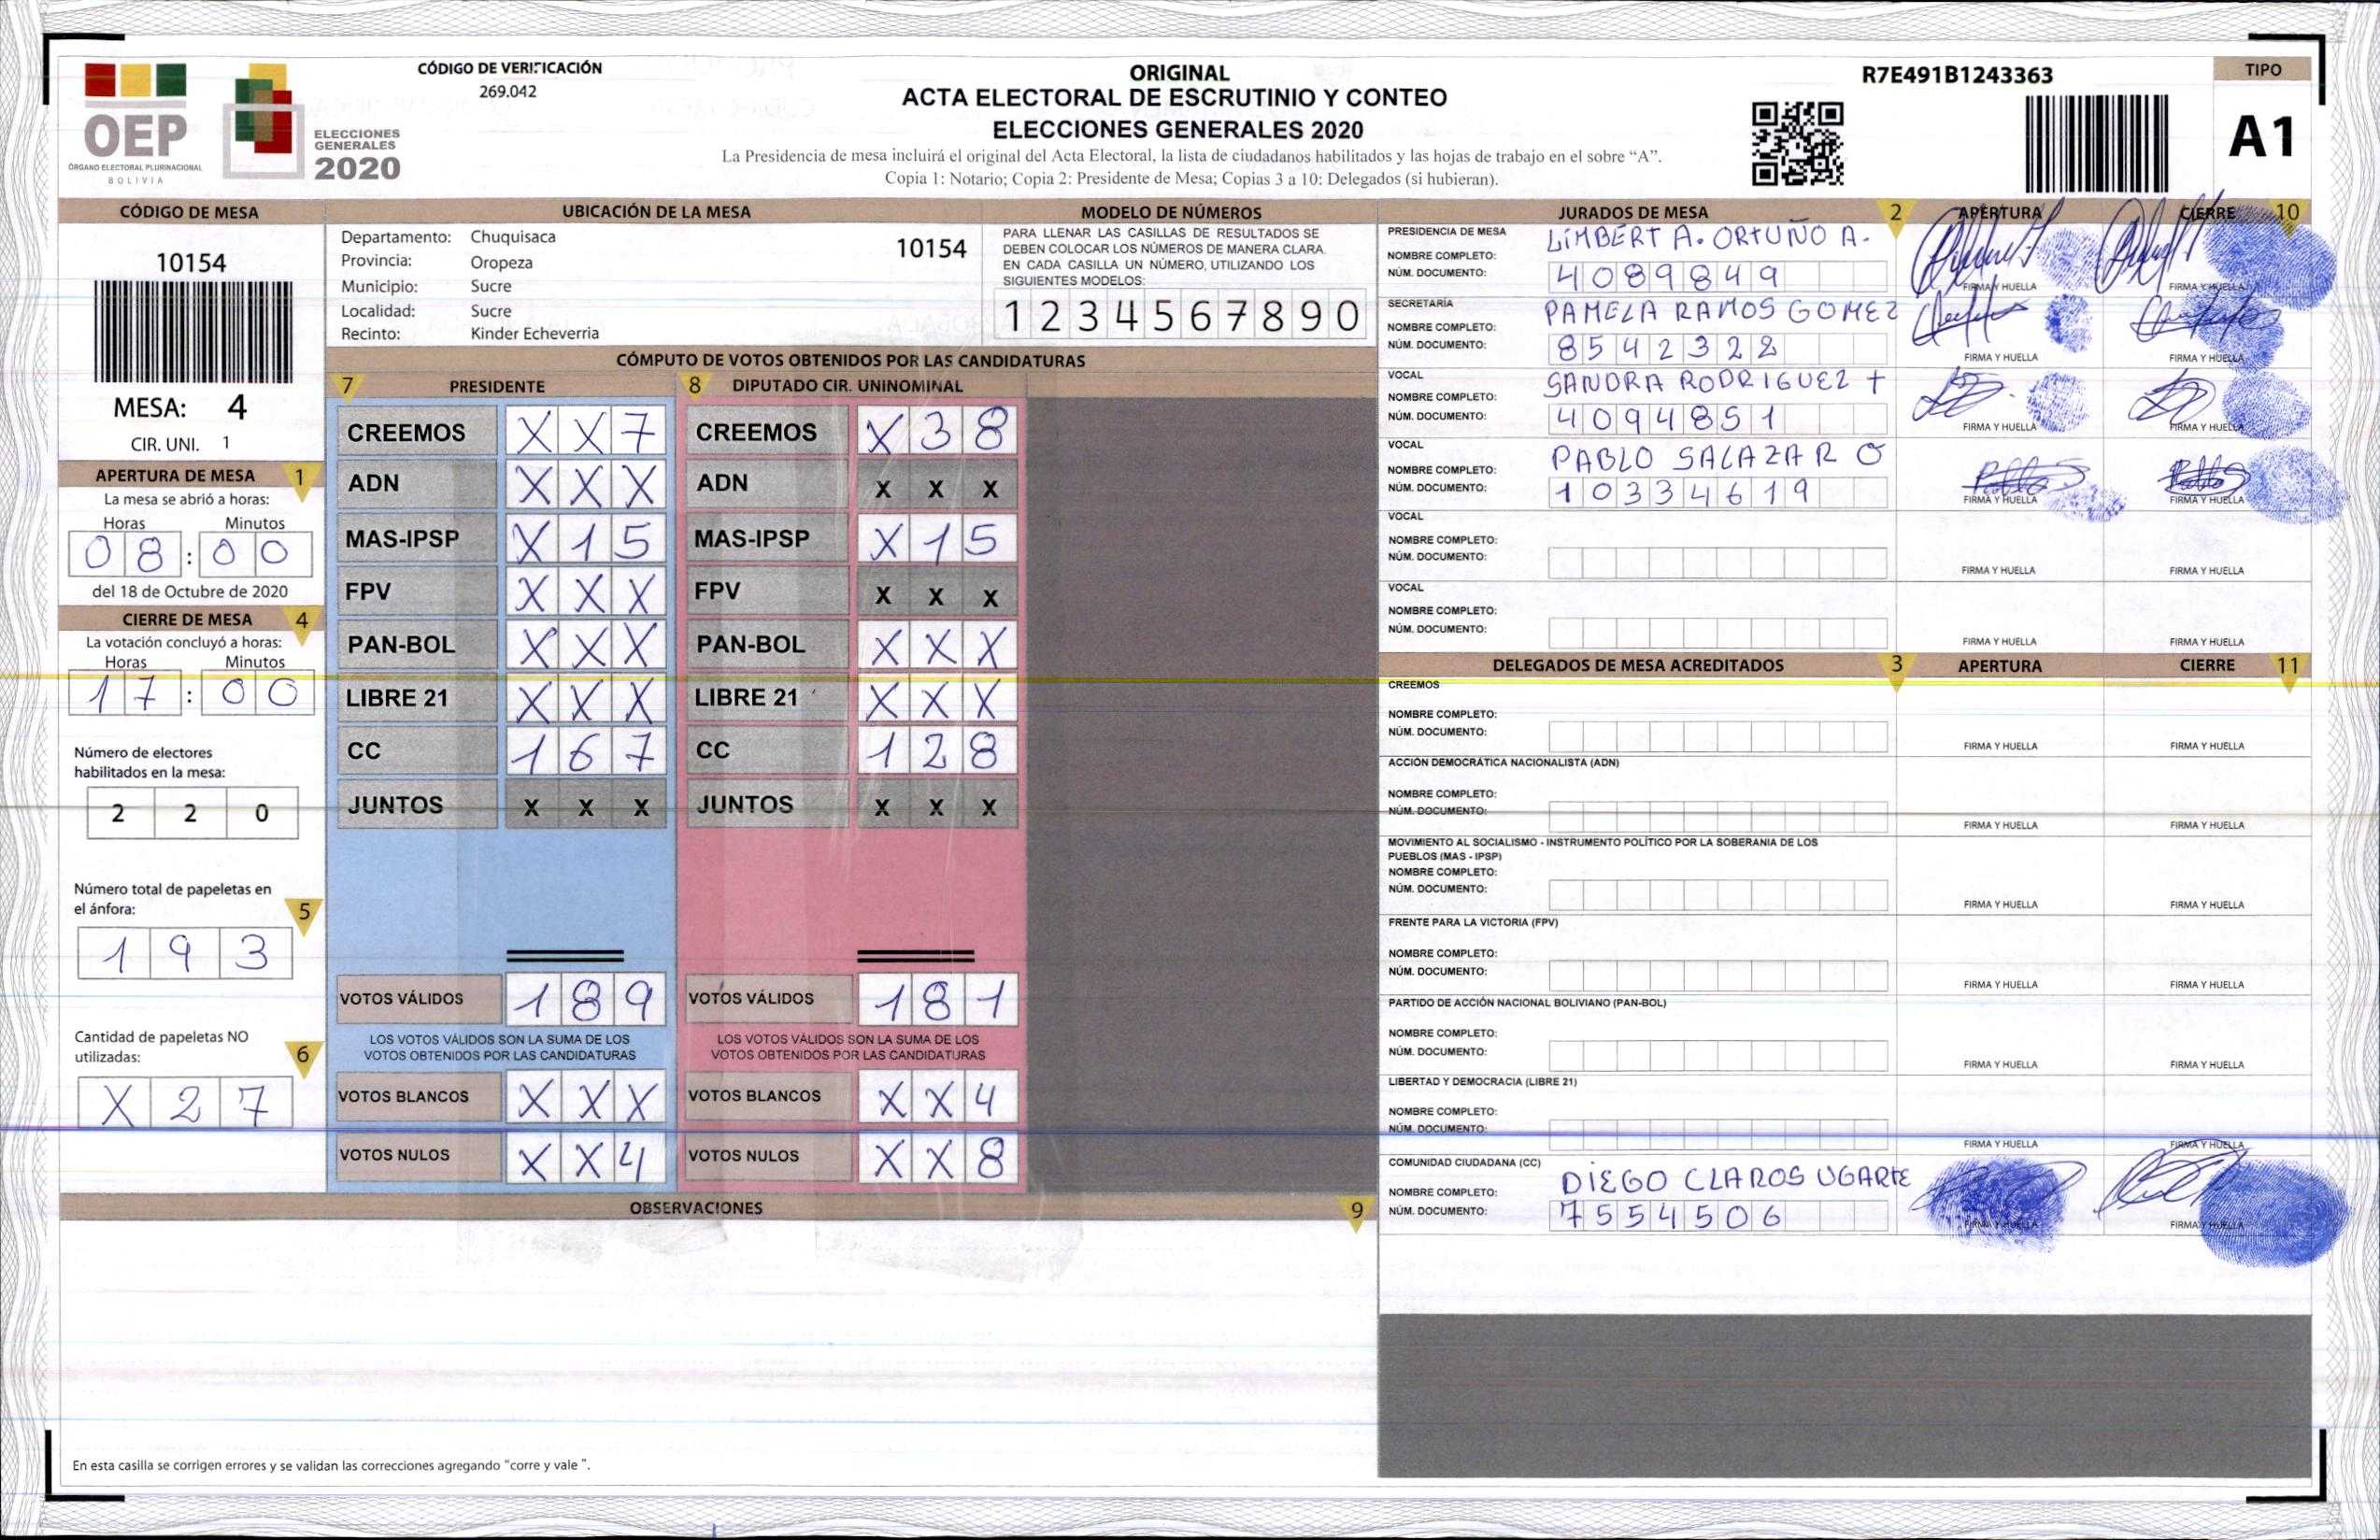 OEP
ÓRGANO ELECTORAL PLURINACIONAL
BOLIVIA
ELECCIONES
GENERALES
2020
CÓDIGO DE VERIFICACIÓN
269.042
ORIGINAL
ACTA ELECTORAL DE ESCRUTINIO Y CONTEO
ELECCIONES GENERALES 2020
La Presidencia de mesa incluirá el original del Acta Electoral, la lista de ciudadanos habilitados y las hojas de trabajo en el sobre “A”.
Copia 1: Notario; Copia 2: Presidente de Mesa; Copias 3 a 10: Delegados (si hubieran).
R7E491B1243363
TIPO
A1
CÓDIGO DE MESA
10154
MESA: 4
CIR. UNI. 1
APERTURA DE MESA 1
La mesa se abrió a horas:
Horas Minutos
08:00
del 18 de Octubre de 2020
CIERRE DE MESA 4
La votación concluyó a horas:
Horas Minutos
17:00
Número de electores
habilitados en la mesa:
2 2 0
Número total de papeletas en
el ánfora: 5
1 9 3
Cantidad de papeletas NO
utilizadas: 6
X 2 7
UBICACIÓN DE LA MESA
Departamento: Chuquisaca 10154
Provincia: Oropeza
Municipio: Sucre
Localidad: Sucre
Recinto: Kinder Echeverria
MODELO DE NÚMEROS
PARA LLENAR LAS CASILLAS DE RESULTADOS SE
DEBEN COLOCAR LOS NÚMEROS DE MANERA CLARA.
EN CADA CASILLA UN NÚMERO, UTILIZANDO LOS
SIGUIENTES MODELOS:
1 2 3 4 5 6 7 8 9 0
CÓMPUTO DE VOTOS OBTENIDOS POR LAS CANDIDATURAS
7 PRESIDENTE 8 DIPUTADO CIR. UNINOMINAL
CREEMOS X X 7 CREEMOS X 3 8
ADN X X X ADN X X X
MAS-IPSP X 1 5 MAS-IPSP X 1 5
FPV X X X FPV X X X
PAN-BOL X X X PAN-BOL X X X
LIBRE 21 X X X LIBRE 21 X X X
CC 1 6 7 CC 1 2 8
JUNTOS X X X JUNTOS X X X
VOTOS VÁLIDOS 1 8 9 VOTOS VÁLIDOS 1 8 1
LOS VOTOS VÁLIDOS SON LA SUMA DE LOS LOS VOTOS VÁLIDOS SON LA SUMA DE LOS
VOTOS OBTENIDOS POR LAS CANDIDATURAS VOTOS OBTENIDOS POR LAS CANDIDATURAS
VOTOS BLANCOS X X X VOTOS BLANCOS X X 4
VOTOS NULOS X X 4 VOTOS NULOS X X 8
OBSERVACIONES 9
En esta casilla se corrigen errores y se validan las correcciones agregando “corre y vale”.
JURADOS DE MESA 2 APERTURA CIERRE 10
PRESIDENCIA DE MESA
NOMBRE COMPLETO: LIMBERT A. ORTUÑO A.
NÚM. DOCUMENTO: 4089849
FIRMA Y HUELLA FIRMA Y HUELLA
SECRETARÍA
NOMBRE COMPLETO: PAMELA RAMOS GOMEZ
NÚM. DOCUMENTO: 8542322
FIRMA Y HUELLA FIRMA Y HUELLA
VOCAL
NOMBRE COMPLETO: SANDRA RODRIGUEZ
NÚM. DOCUMENTO: 4094851
FIRMA Y HUELLA FIRMA Y HUELLA
VOCAL
NOMBRE COMPLETO: PABLO SALAZAR O
NÚM. DOCUMENTO: 10334619
FIRMA Y HUELLA FIRMA Y HUELLA
VOCAL
NOMBRE COMPLETO:
NÚM. DOCUMENTO:
FIRMA Y HUELLA FIRMA Y HUELLA
VOCAL
NOMBRE COMPLETO:
NÚM. DOCUMENTO:
FIRMA Y HUELLA FIRMA Y HUELLA
DELEGADOS DE MESA ACREDITADOS 3 APERTURA CIERRE 11
CREEMOS
NOMBRE COMPLETO:
NÚM. DOCUMENTO:
FIRMA Y HUELLA FIRMA Y HUELLA
ACCIÓN DEMOCRÁTICA NACIONALISTA (ADN)
NOMBRE COMPLETO:
NÚM. DOCUMENTO:
FIRMA Y HUELLA FIRMA Y HUELLA
MOVIMIENTO AL SOCIALISMO - INSTRUMENTO POLÍTICO POR LA SOBERANIA DE LOS
PUEBLOS (MAS - IPSP)
NOMBRE COMPLETO:
NÚM. DOCUMENTO:
FIRMA Y HUELLA FIRMA Y HUELLA
FRENTE PARA LA VICTORIA (FPV)
NOMBRE COMPLETO:
NÚM. DOCUMENTO:
FIRMA Y HUELLA FIRMA Y HUELLA
PARTIDO DE ACCIÓN NACIONAL BOLIVIANO (PAN-BOL)
NOMBRE COMPLETO:
NÚM. DOCUMENTO:
FIRMA Y HUELLA FIRMA Y HUELLA
LIBERTAD Y DEMOCRACIA (LIBRE 21)
NOMBRE COMPLETO:
NÚM. DOCUMENTO:
FIRMA Y HUELLA FIRMA Y HUELLA
COMUNIDAD CIUDADANA (CC)
NOMBRE COMPLETO: DIEGO CLAROS UGARTE
NÚM. DOCUMENTO: 7554506
FIRMA Y HUELLA FIRMA Y HUELLA